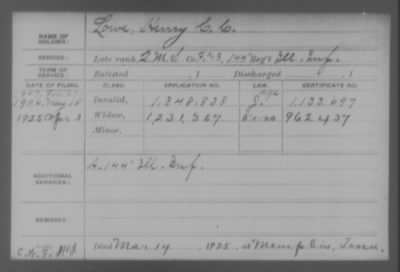 NAME OF SOLDIER: Lowe, Henry C. C.
SERVICE: Late rank, Q.M.S. Co. F. & S., 144" Reg't Ill. Inf.
TERM OF SERVICE: Enlisted , 1 Discharged , 1
DATE OF FILING. CLASS. APPLICATION NO. LAW. CERTIFICATE NO.
1904, May 18 Invalid, 1.348.838 1.133.697
1925 Apr. 3 Widow, 1231,357 962437
Minor,
ADDITIONAL SERVICES: 144" Ill. Inf.
REMARKS:
Died Mar 14, 1925, at Memphis, Tenn.